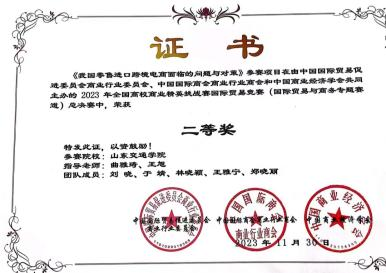 证书
《我国零售进口跨境电商面临的问题与对策》参赛项目在由中国国际贸易促
进委员会商业行业委员会、中国国际商会商业行业商会和中国商业经济学会共同
主办的 2023 年全国高校商业精英挑战赛国际贸易竞赛（国际贸易与商务专题赛
道）总决赛中，荣获
二等奖
特发此证，以资鼓励！
参赛院校：山东交通学院
指导老师：曲雅琦、王旭
团队成员：刘晓、于婧、林晓颖、王雅宁、郑晓丽
中国国际贸易促进委员会 中国国际商会商业行业商会 中国商业经济学会
商业行业委员会
2023 年 11 月 30 日